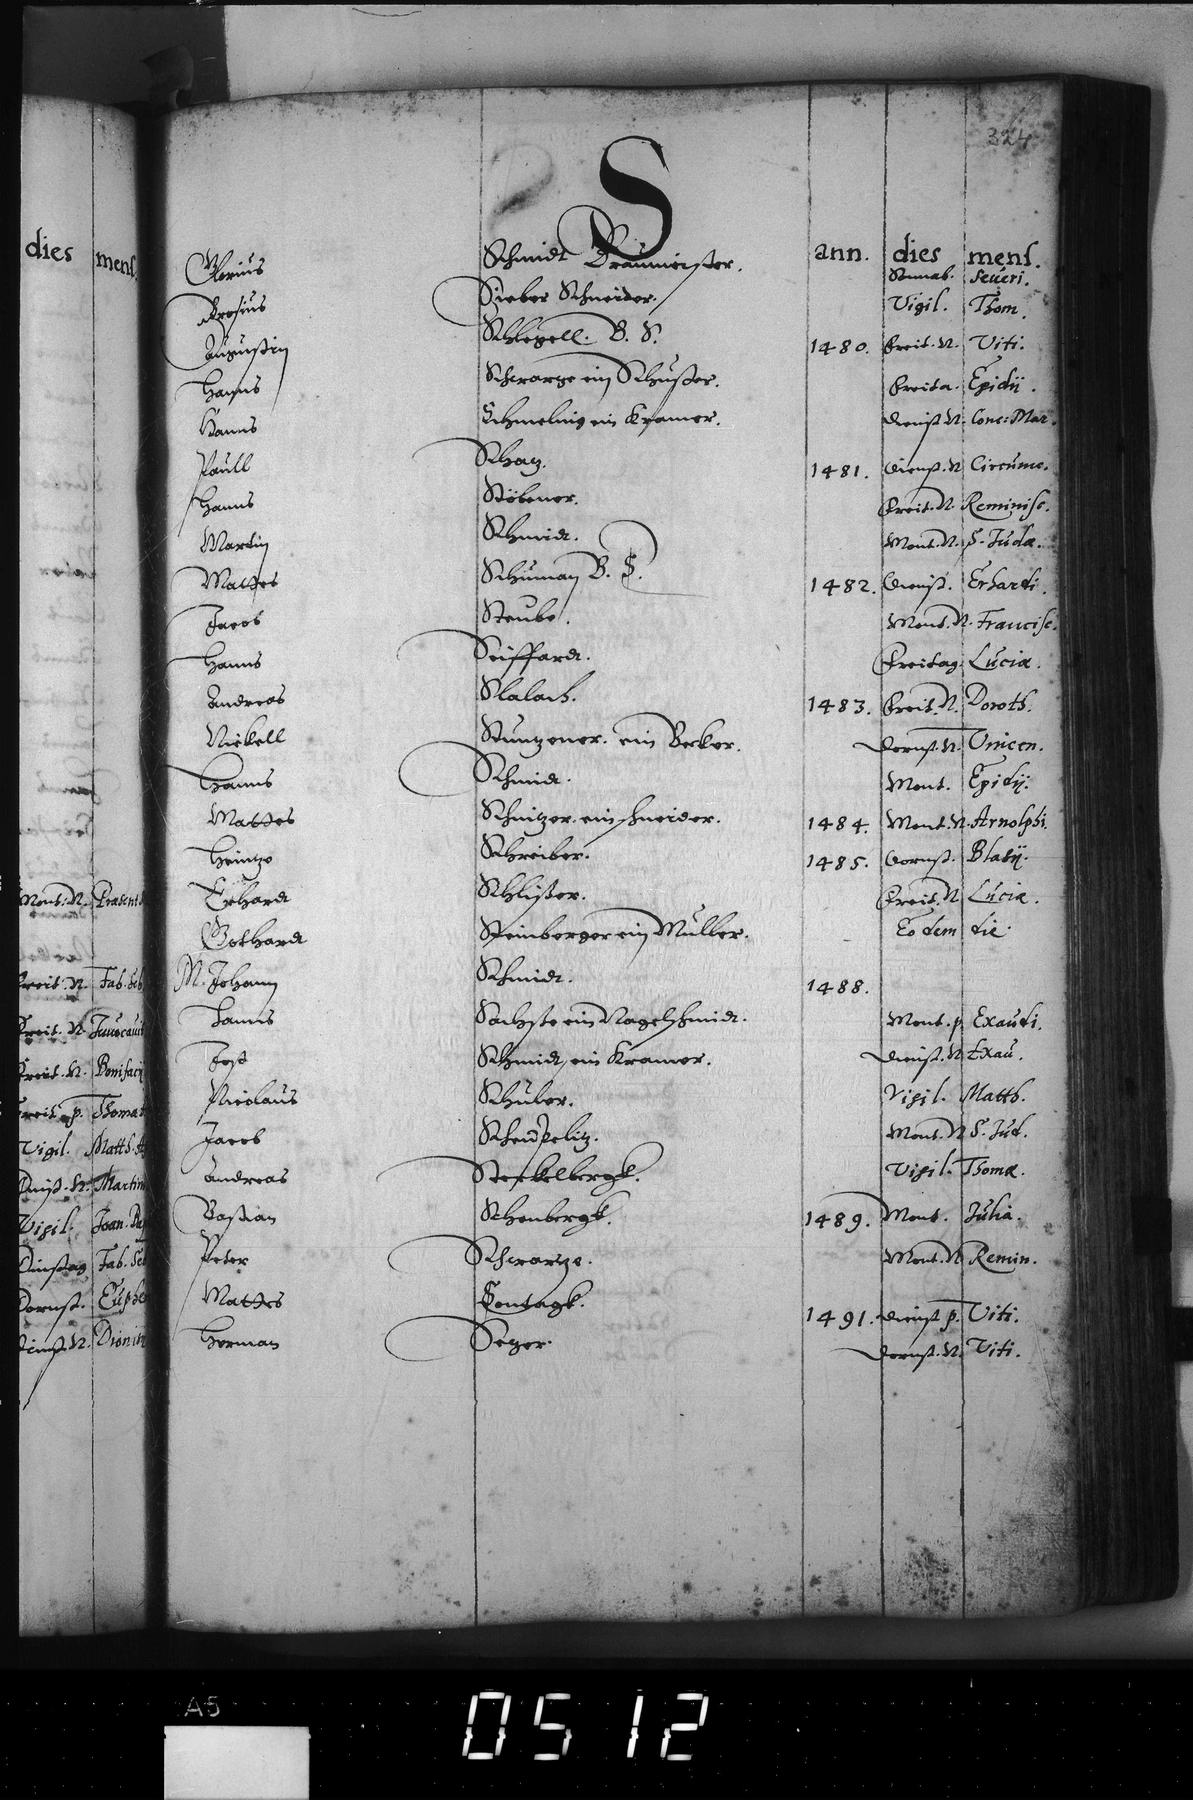 324
S
dies mens.
ann. dies mens.
Glorius Schmidt Braumeister. Sonnab. Seueri.
Brosius Sieber Schneider. Vigil. Thom.
Augustin Schlegell. B. S. 1480. Freit. N. Viti.
Hanns Schwarze ein Schuster. Freita. Egidÿ.
Hanns Schmeling ein Kramer. Dienst N. Conc: Mar.
Paull Schatz. 1481. Dienst. N Circumc.
Hanns Stöbener. Freit. N. Reminisc.
Martin Schmidt. Mont. N. S. Judæ.
Mattes Schuman B. S. 1482. Dienst. Erhardi.
Jacob Steube. Mont. N. Francisc.
Hanns Seiffardt. Freitag. Luciæ.
Andreas Slalach. 1483. Freit. N. Doroth.
Nickell Stuntzener. ein Becker. Dornst. N. Vincen.
Hanns Schmidt. Mont. Egidÿ.
Mattes Schnitzer. ein schneider. 1484. Mont. N. Arnolphi.
Heintze Schreiber. 1485. Dornst. Blasÿ.
Erhardt Schlister. Freit. N Luciæ.
Gothardt Steinberger ein Muller. Eodem die.
M. Johann Schmidt. 1488.
Hanns Sachste ein Nagelschmidt. Mont. p. Exaudi.
Jost Schmidt, ein Kramer. Dienst. N Exau.
Nicolaus Schuler. Vigil. Matth.
Jacob Mont. N S. Jud.
Andreas Steckelbergk. Vigil. Thomæ.
Bastian Schonbergk. 1489. Mont. Julia.
Peter Schwartze. Mont. N Remin.
Mattes Sontagk. 1491. Dienst p. Viti.
Herman Seger. Dornst. N. Viti.
Mont: N. Præsent
Freit. N. Fab. Seb
Freit. N. Inuocauit
Freit. N. Bonifacÿ
Freit p. Thomæ
Vigil. Matth.
Dinst. N. Martin
Vigil. Joan. Bap
Dinstag Fab. Seb
Dornst. Euphe
Dinst N. Dionisi
A5
0512